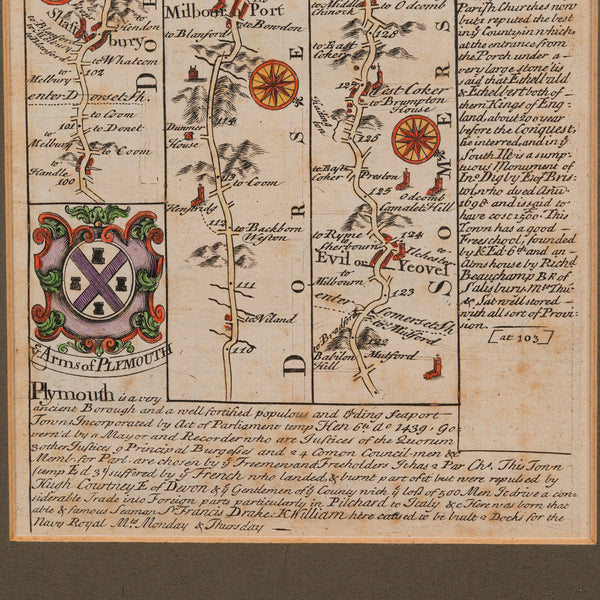 Shaftsbury
to Hendon
to Whatcom
to Melbury
102
enter Dorset Sh.
to Coom
101
to Donet
to Melbury
to Coom
to Handle
100
DO
Milbourn Port
to Bowdon
to Blanford
114
Dunmer House
113
to Coom
Henstrids
112
to Backborn Weston
111
to Niland
110
DORSE
to Middle Chinock
to Odcomb
128
to East Coker
127
East Coker
to Brumpton House
126
to East Coker
Preston
125
Odcomb
Camalet Hill
to Ryme
to Sherbourn
124
to Ilchester
Evil or Yeovel
to Milbourn
123
enter
Somerset Sh.
to Mudford
122
Mudford
Babilon Hill
SOMERS
Parish Churches now
but 1 reputed the best
in yͤ County in which
at the entrance from
the Porch under a
very large stone tis
said that Ethelbald
& Ethelbert both of
them Kings of Eng=
land, about 200 year
before the Conquest,
lie interred, and in yͤ
South Ile is a sump=
tuous Monument of
Jnᵒ Digby E of Bris=
tol, who dyed Anᵒ
1698 and is said to
have cost 1500. This
Town has a good
Freeschool, founded
by K Ed 6ᵗʰ and an
Alms house by Richᵈ
Beauchamp Bᵖ of
Salisbury. Mᵗˢ Thu:
& Sat well stored
with all sort of Provi=
sion.
at 103
yͤ Arms of PLYMOUTH
Plymouth is a very
ancient Borough and a well fortified populous and trding seaport
Town Incorporated by Act of Parliament temp Hen 6ᵗʰ Aᵒ 1439. Go
vern'd by a Mayor and Recorder who are Justices of the Quorum
3 other Justices 9 Principal Burgesses and 24 Comon Council-men &c
Memb. for Parl. are chosen by yͤ Freemen and Freeholders It has 2 Par Chs. This Town
(temp E d 3ᵈ) suffered by yͤ French who landed, & burnt part of it but were repulsed by
Hugh Courtney E of Devon & yͤ gentlemen of yͤ County with yͤ loss of 500 Men It drive a con=
siderable Trade into Foreign parts particularly in Pilchard to Italy &c Here was born that
able & famous Seaman Sʳ Francis Drake. K William here caused to be built 2 Docks for the
Navy Royal Mᵗˢ Monday & Thursday